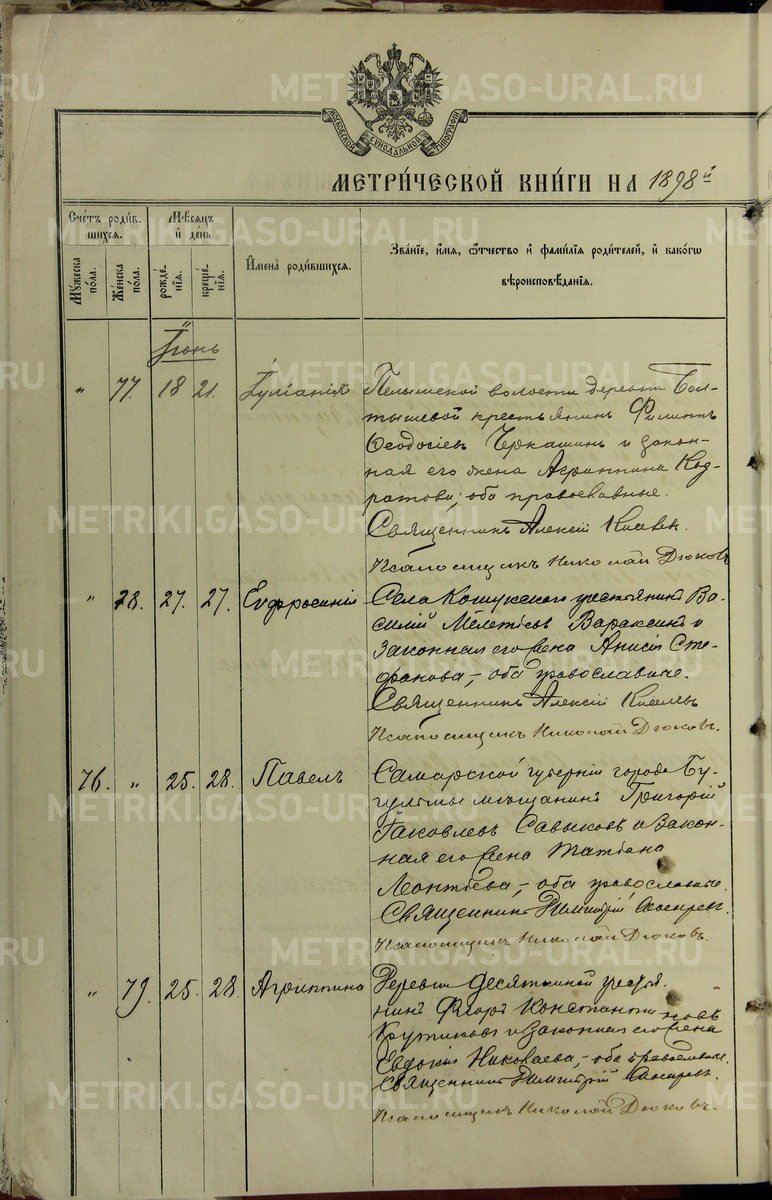 МОСКОВСКОЙ СѴНОДАЛЬНОЙ ТИПОГРАФІИ
МЕТРИ́ЧЕСКОЙ КНИ́ГИ НА 1898й
Сче́тъ роди́вшихся.
Мѣ́сяцъ и҆ де́нь
И҆мена̀ роди́вшихся.
Зва́нїе, и҆́мѧ, ѻ҆́тчество и҆ фамѝлїѧ роди́телей, и҆ како́гѡ
вѣроисповѣ́данїѧ.
Мꙋ́жеска по́ла.
Же́нска по́ла.
рожде́нїѧ.
креще́нїѧ.
Іюнь
" 77. 18 21. Іуліанія
Пелымской волости деревни Бол-
тышевой крестьянинъ Филиппъ
Ѳеодосіевъ Черкашинъ и закон-
ная его жена Агриппина Код-
ратова; оба православные.
Священникъ Алексій Киселевъ.
Псаломщикъ Николай Дюковъ
" 78. 27. 27. Евфросинія
Села Кошукскаго крестьянинъ Ва-
силій Мелетіевъ Вараксинъ и
законная его жена Анисія Сте-
фанова, – оба православные.
Священникъ Алексій Киселевъ
Псаломщикъ Николай Дюковъ.
76. " 25. 28. Павелъ
Самарской губерніи города Бу-
гульмы мѣщанинъ Григорій
Іаковлевъ Савыковъ и закон-
ная его жена Татіана
Леонтіева, – оба православные.
Священникъ Димитрій
Псаломщикъ Николай Дюковъ.
" 79. 25. 28. Агриппина
Деревни Десятинной крестья-
нинъ Флоръ Константиновъ
Крутиковъ и законная его жена
Евдокія Николаева, – оба православные.
Священникъ Димитрій
Псаломщикъ Николай Дюковъ.
METRIKI.GASO-URAL.RU